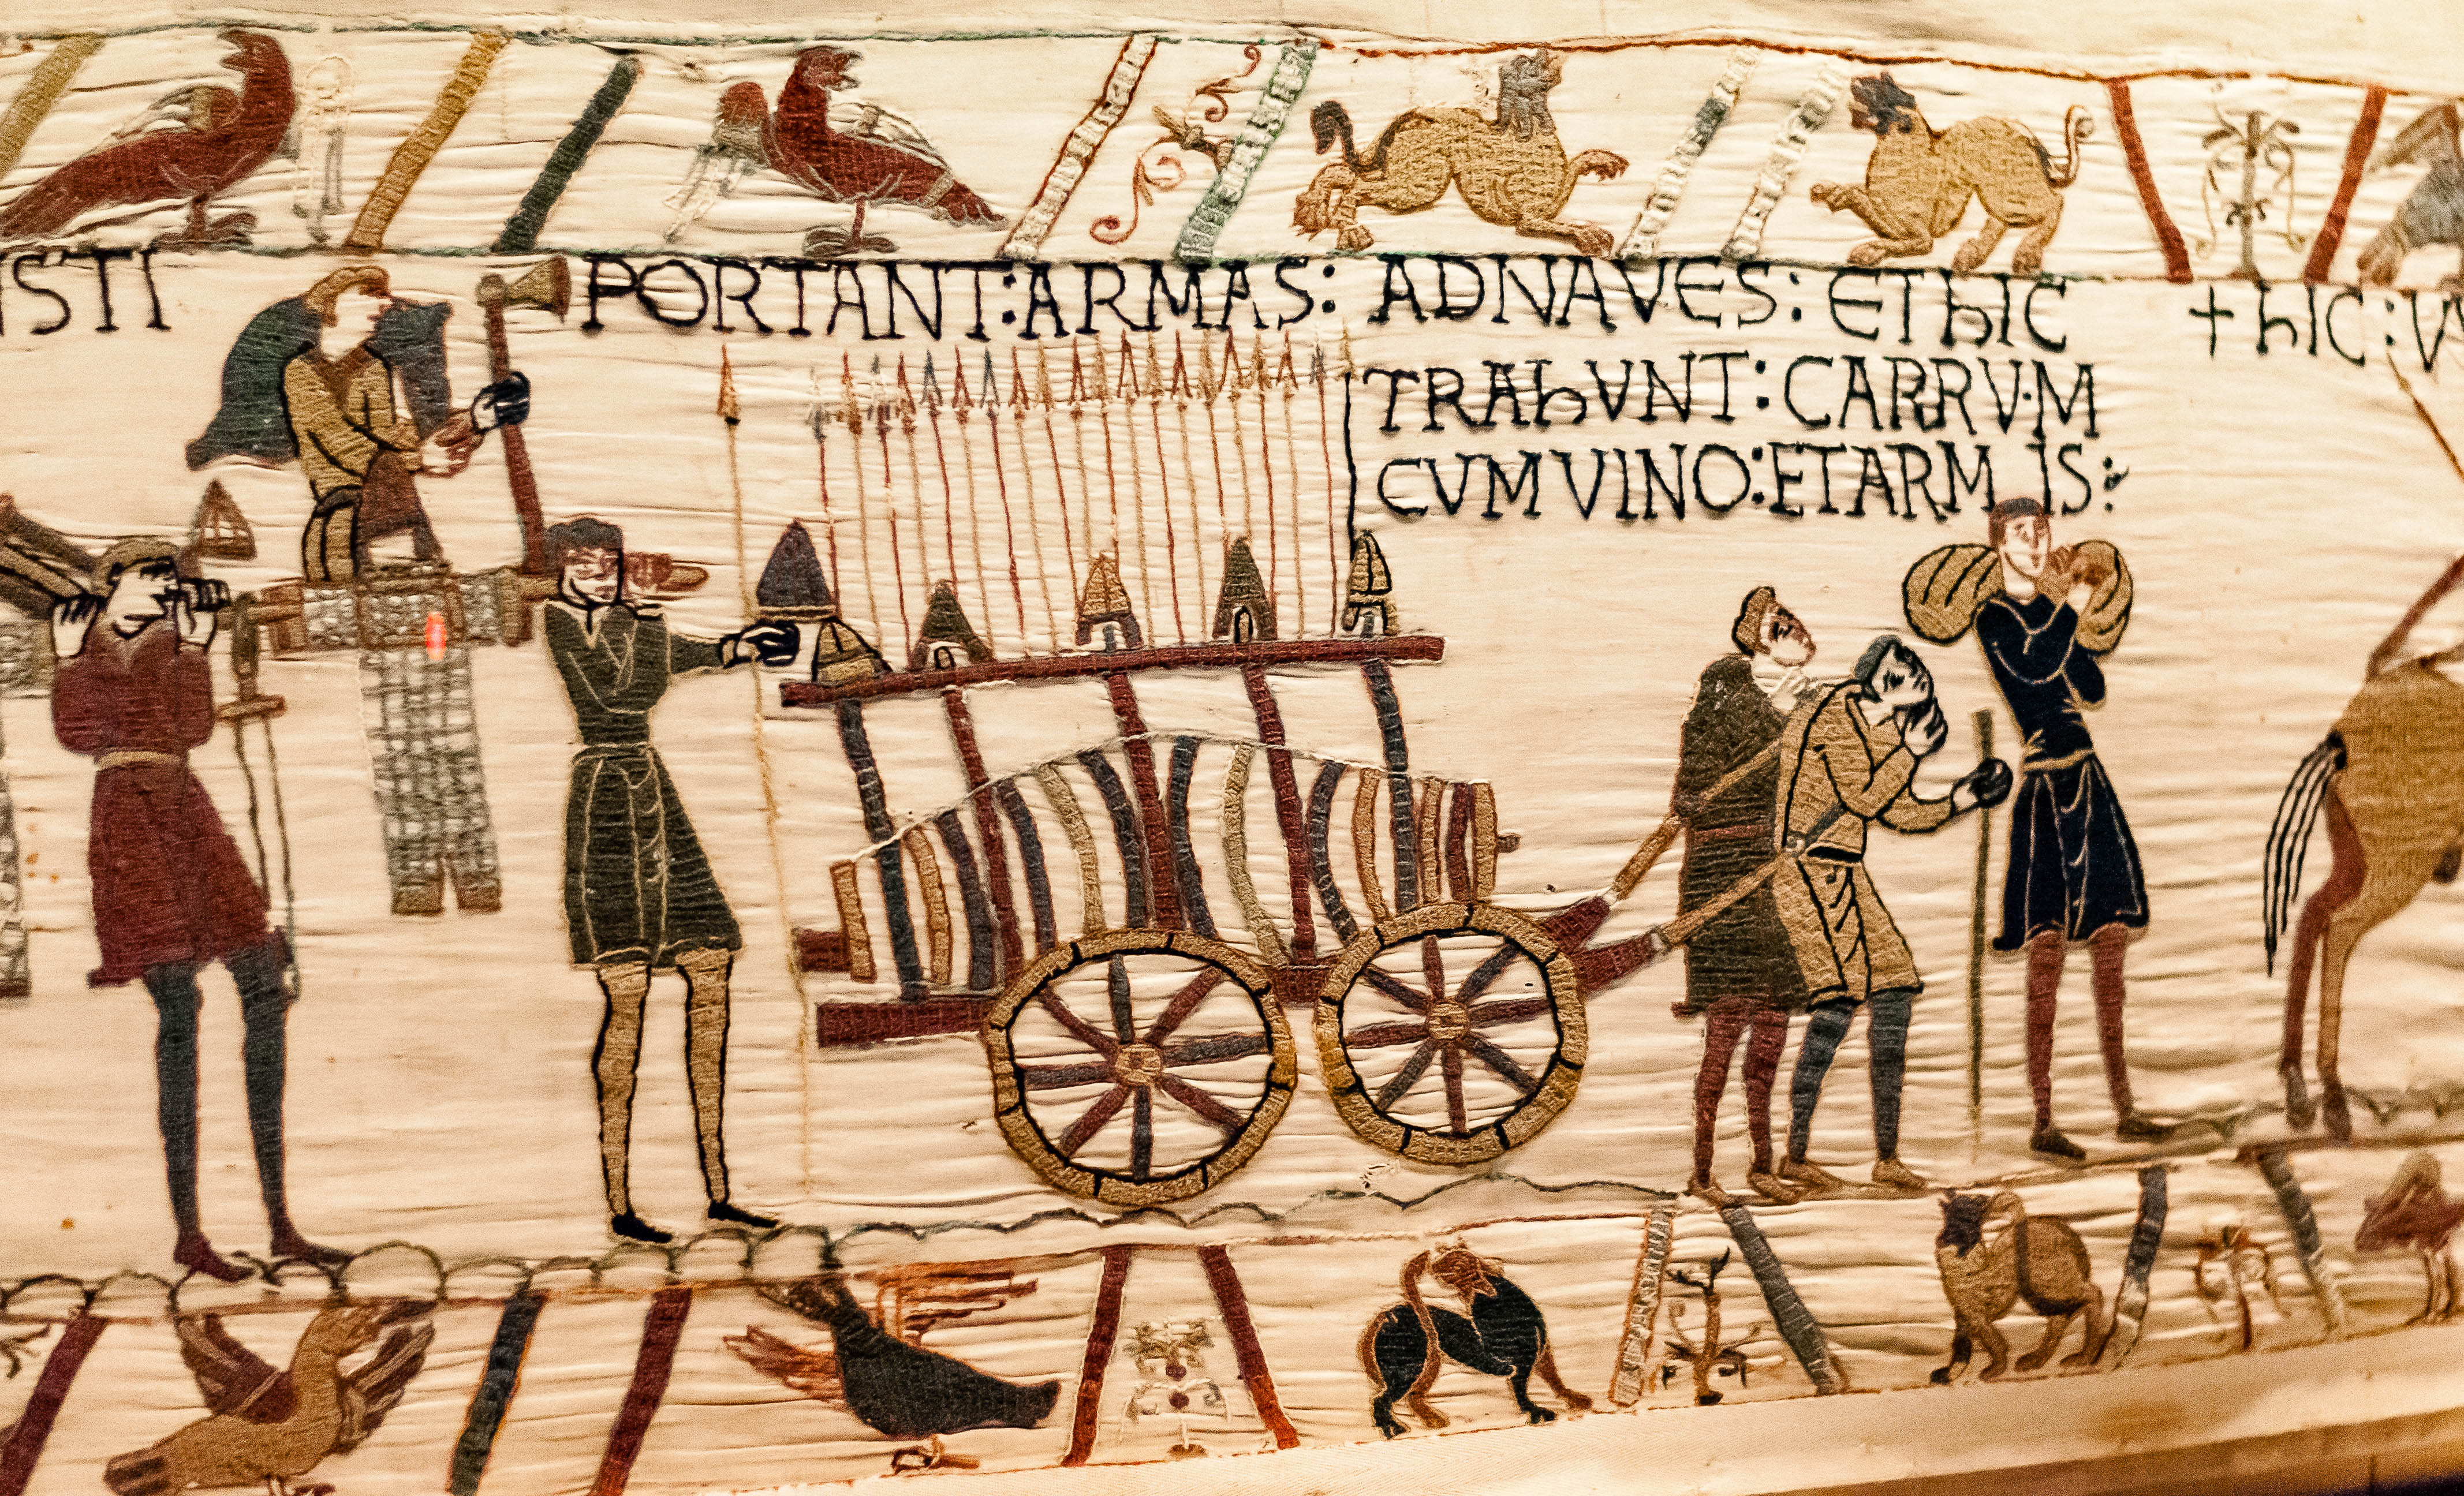 ISTI PORTANT:ARMAS: ADNAVES: EThIC
TRAhVNT: CARRVM
CVM VINO: ETARMIS:
+ hIC: